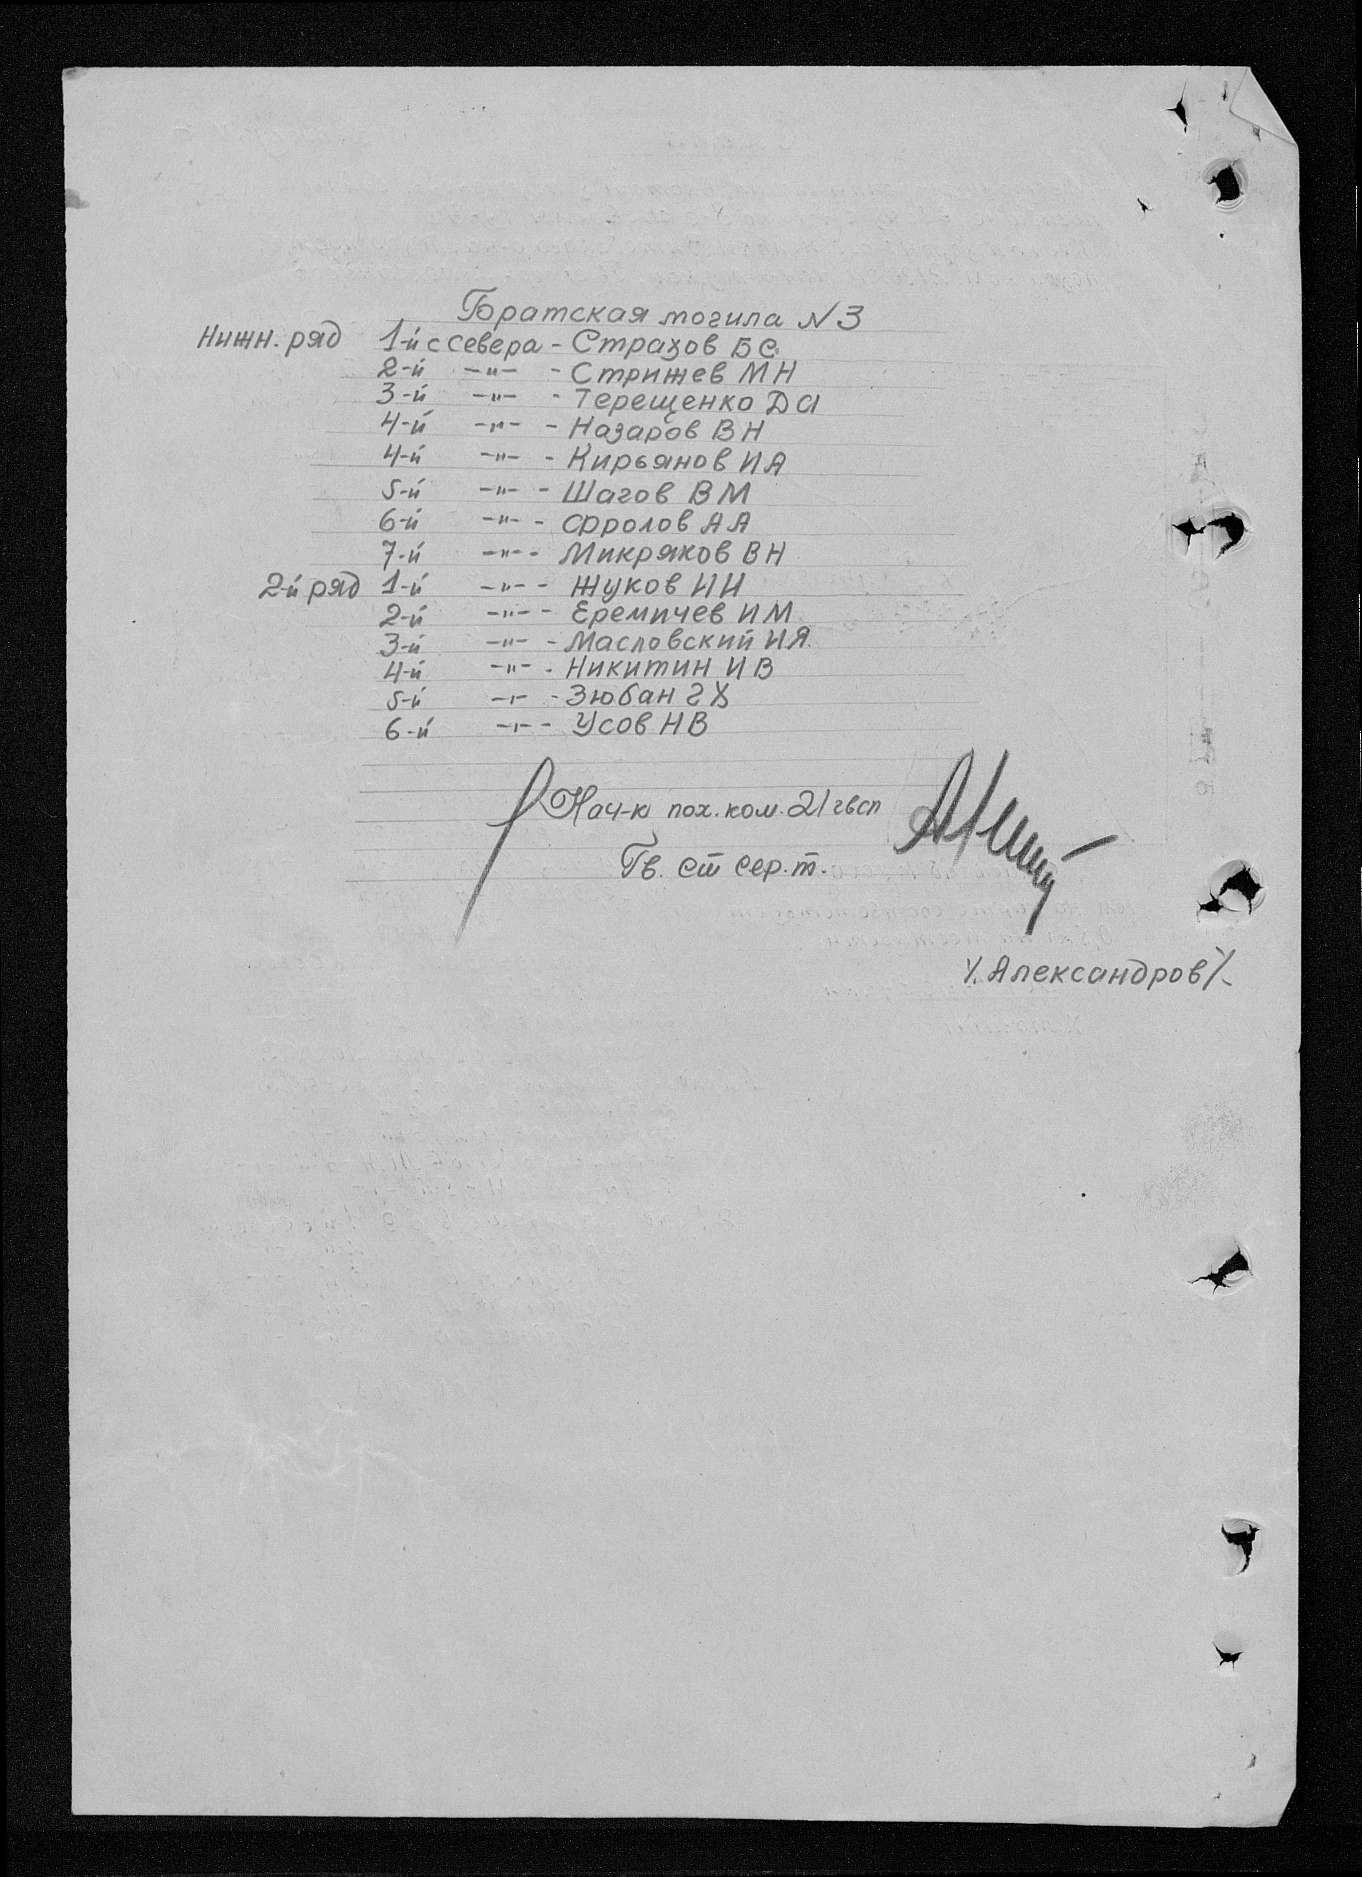 Братская могила N 3
Нижн. ряд 1-й с севера - Страхов Б С
2-й -"- - Стрижев М Н
3-й -"- - Терещенко Д А
4-й -"- - Назаров В Н
4-й -"- - Кирьянов И А
5-й -"- - Шагов В М
6-й -"- - Фролов А А
7-й -"- - Микряков В Н
2-й ряд 1-й -"- - Жуков И И
2-й -"- - Еремичев И М
3-й -"- - Масловский И Я
4-й -"- - Никитин И В
5-й -"- - Зюбан Г Х
6-й -"- - Усов Н В
Нач-к пох. ком. 21 гвсп
Гв. ст сер-т.
/. Александров/.